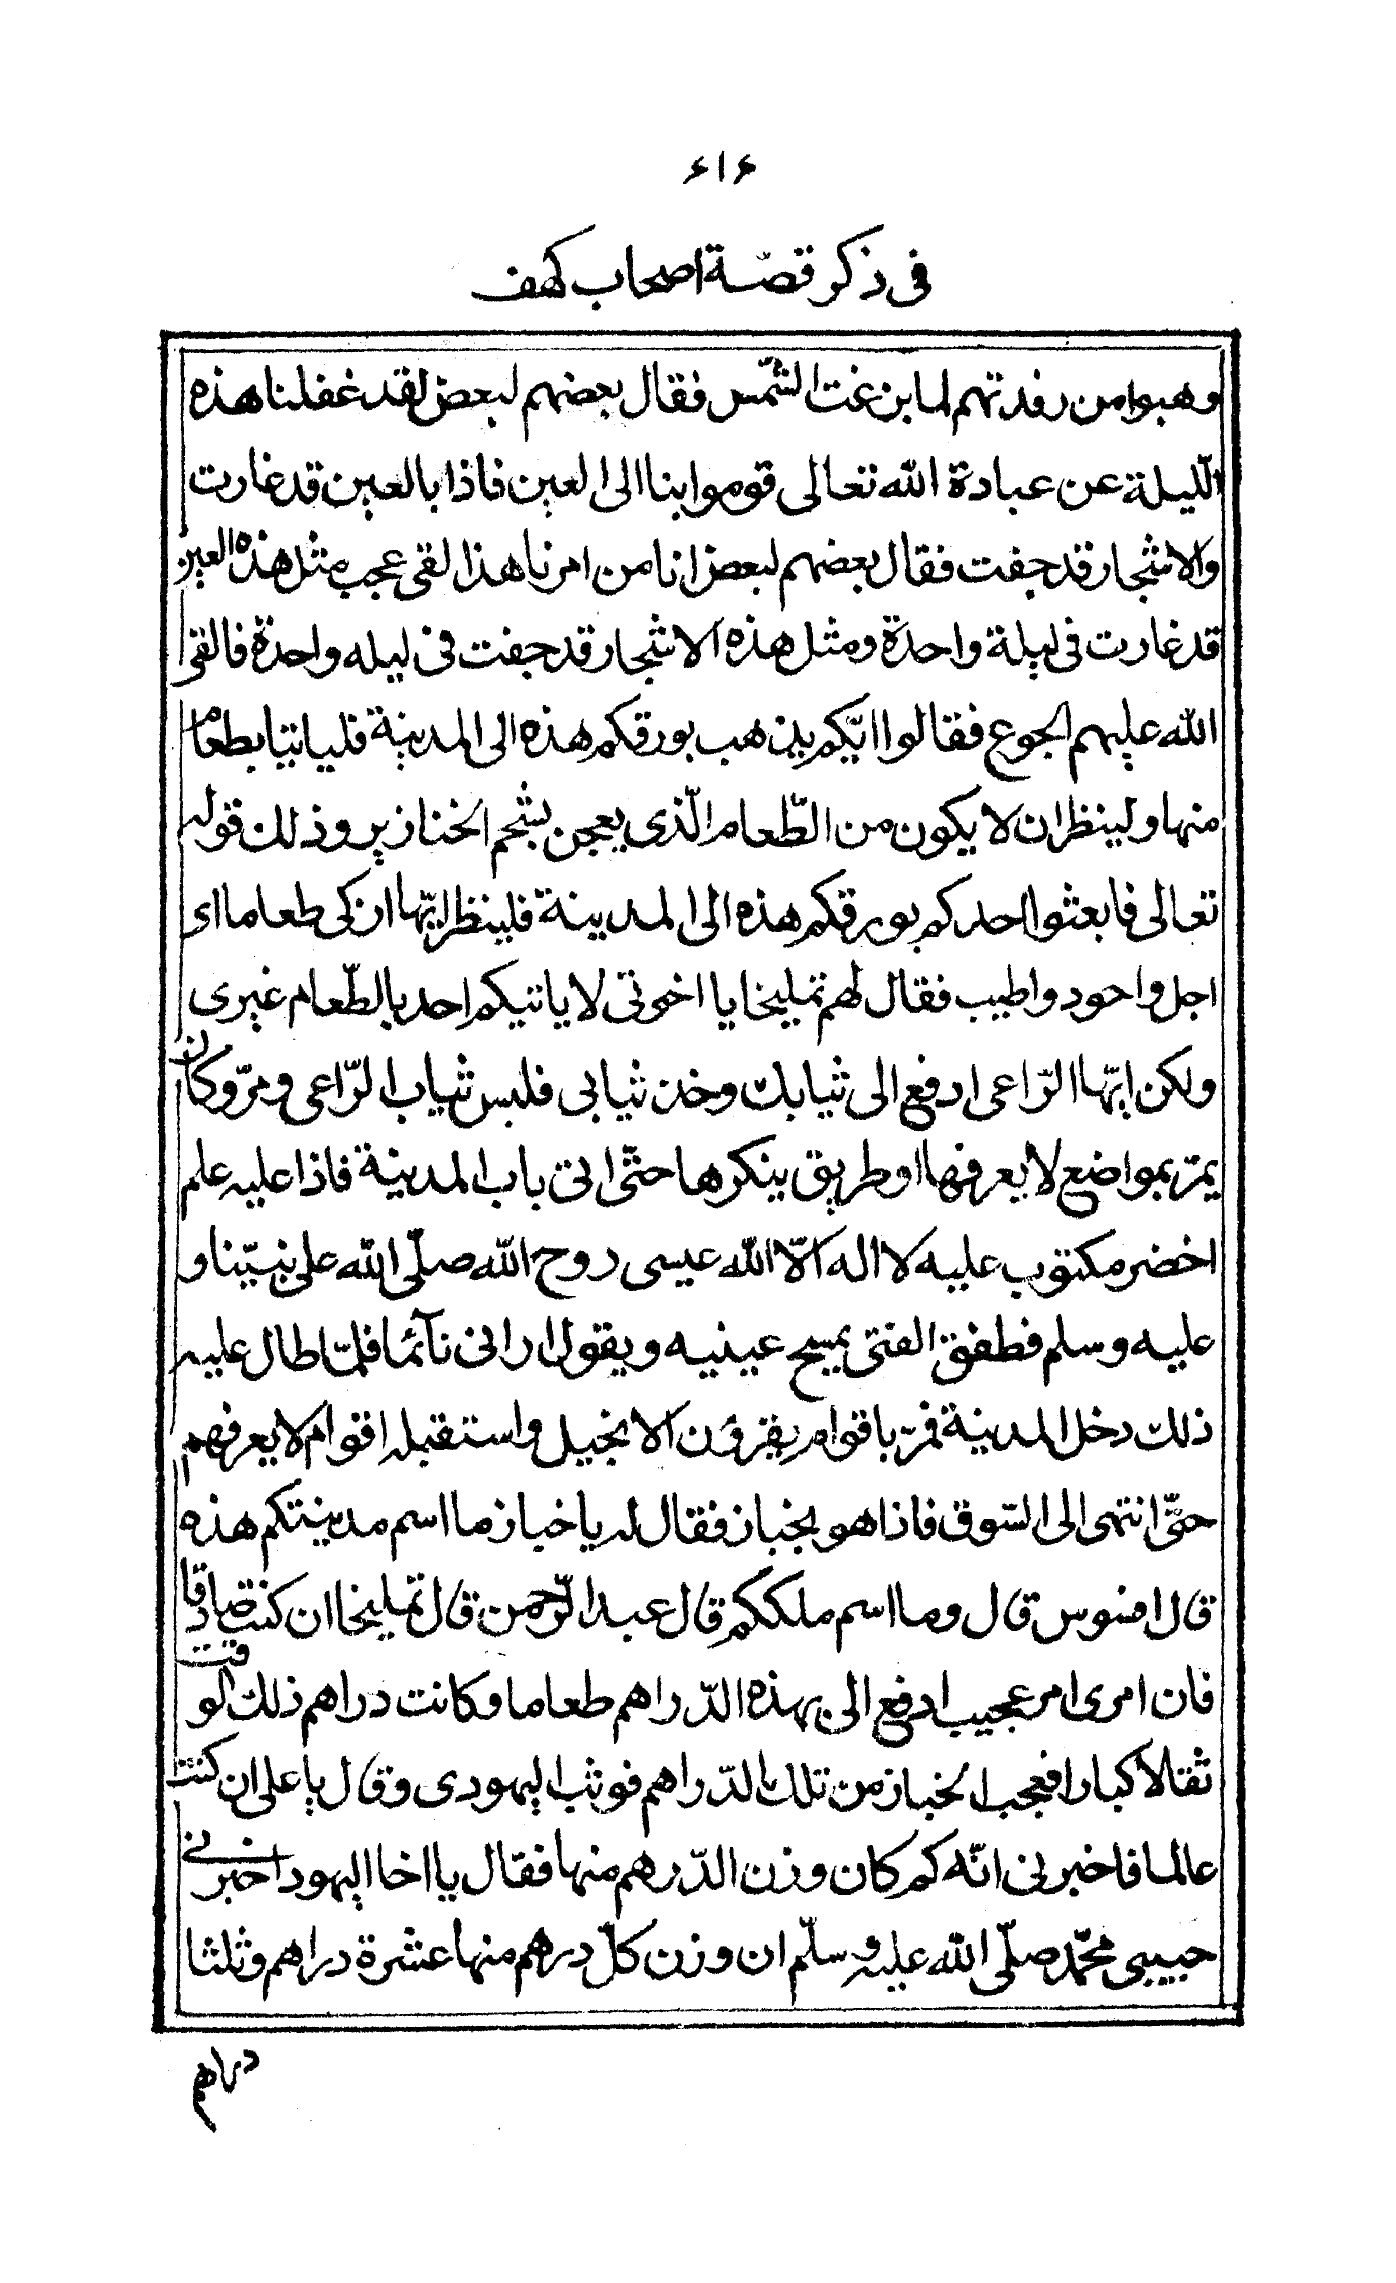 ۶۱۶
فى ذكر قصّة اصحاب كهف
وهبوا من رفدتهم لما بزغت الشّمس فقال بعضهم لبعض لقد غفلنا هذه
اللّيلة عن عبادة الله تعالى قوموا بنا الى العين فاذا بالعين قد غارت
والاشجار قد جفت فقال بعضهم لبعض انا من امرنا هذا لفى عجب مثل هذه العين
قد غارت فى ليلة واحدة ومثل هذه الاشجار قد جفت فى ليله واحدة فالقى
الله عليهم الجوع فقالوا ايّكم يذهب بورقكم هذه الى المدينة فلياتينا بطعام
منها ولينظر ان لا يكون من الطّعام الّذى يعجن بشحم الخنازير وذلك قوله
تعالى فابعثوا احدكم بورقكم هذه الى المدينة فلينظر ايّها ازكى طعاما اى
اجل واجود واطيب فقال لهم تمليخا يا اخوتى لا ياتيكم احد بالطّعام غيرى
ولكن ايّها الرّاعى ادفع الى ثيابك وخذ ثيابى فلبس ثياب الرّاعى ومرّ وكان
يمرّ بمواضع لا يعرفها وطريق ينكرها حتّى اتى باب المدينة فاذا عليه علم
اخضر مكتوب عليه لا اله الّا الله عيسى روح الله صلّى الله على نبيّنا و
عليه وسلم فطفق الفتى يمسح عينيه ويقول ارانى نآئما فلمّا طال عليه
ذلك دخل المدينة فمرّ باقوام يقرؤن الانجيل واستقبله اقوام لا يعرفهم
حتّى انتهى الى السّوق فاذا هو بخباز فقال له يا خباز ما اسم مدينتكم هذه
قال افسوس قال وما اسم ملككم قال عبد الرّحمن قال تمليخا ان كنت صادقا
فان امرى امر عجيب ادفع الى بهذه الدّراهم طعاما وكانت دراهم ذلك الوقت
ثقالا كبارا فعجب الخباز من تلك الدّراهم فوثب اليهودى وقال يا على ان كنت
عالما فاخبرنى انّه كم كان وزن الدّرهم منها فقال يا اخا اليهود اخبرنى
حبيبى محمّد صلّى الله عليه وسلّم ان وزن كلّ درهم منها عشرة دراهم وثلثا
دراهم